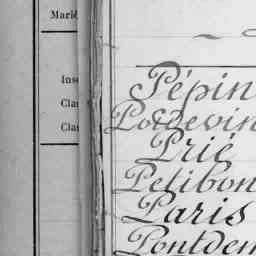 Marié
Inse
Clas
Clas
Pépin
Potdevin
Prié
Petibon
Paris
Pontdem